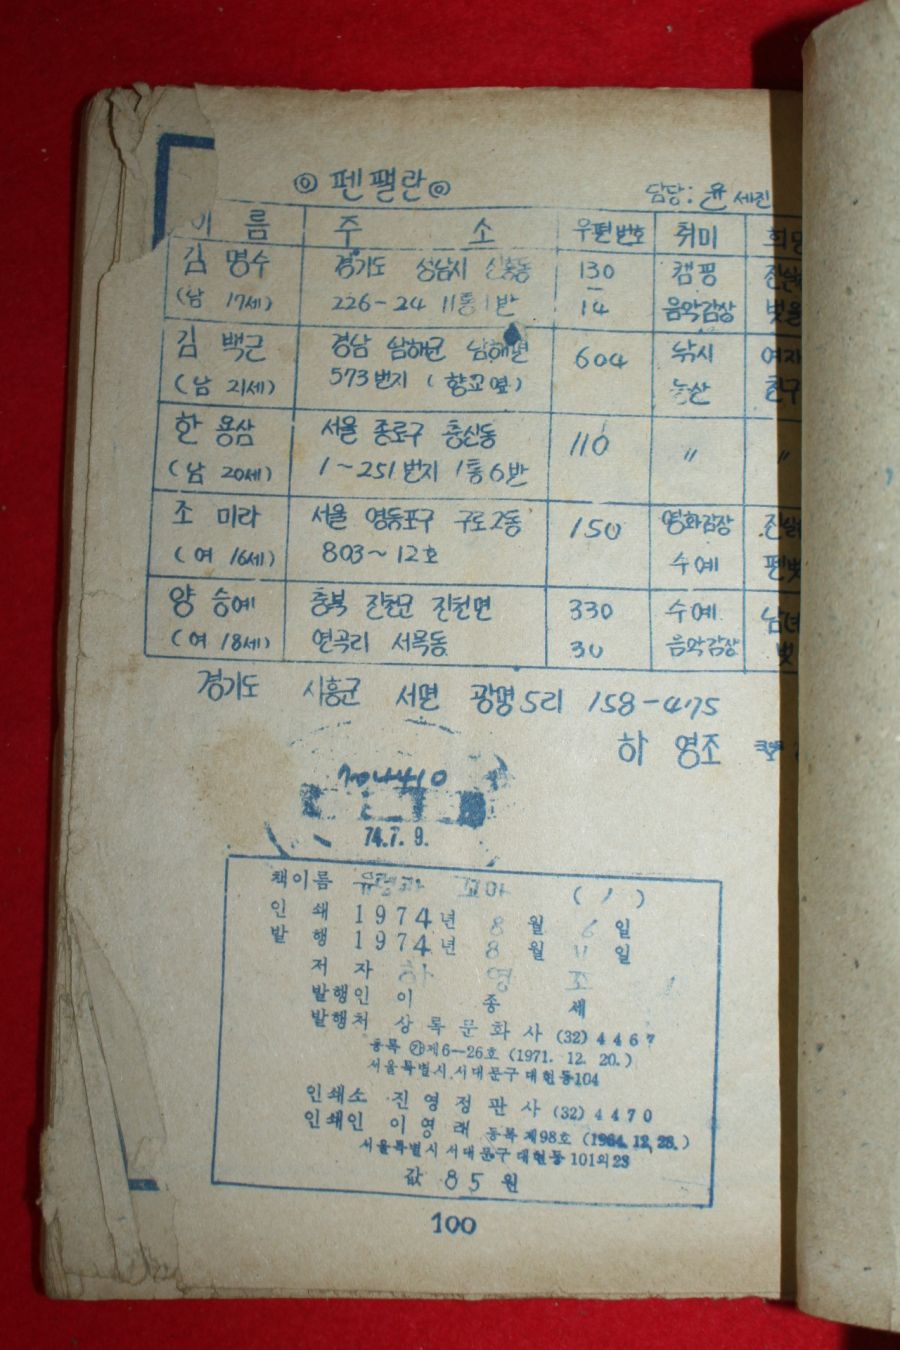 ◎ 펜팰란 ◎
담당: 윤 세진
이 름 주 소 우편번호 취미 희망
김 명수 경기도 성남시 신흥동 130 캠핑 진실
(남 17세) 226-24 11통 1반 14 음악감상 벗을
김 백근 경남 남해군 남해면 604 낚시 여자
(남 21세) 573번지 (향교옆) 친구
한 용삼 서울 종로구 충신동 110 〃 〃
(남 20세) 1~251번지 1통6반
조 미라 서울 영등포구 구로2동 150 영화감상 진실
(여 16세) 803~12호 수예 펜벗
양 승예 충북 진천군 진천면 330 수예 남녀
(여 18세) 연곡리 서목동 30 음악감상 벗
경기도 시흥군 서면 광명5리 158-475
하 영조
74.7.9.
책이름 유령과 꼬마 (1)
인 쇄 1974년 8월 6일
발 행 1974년 8월 11일
저 자 하 영 조
발행인 이 종 세
발행처 상록문화사 (32)4467
등록 ㉮제6-26호 (1971. 12. 20.)
서울특별시 서대문구 대현동104
인쇄소 진영정판사 (32)4470
인쇄인 이영래 등록 제98호 (1964. 12. 28.)
서울특별시 서대문구 대현동 101의23
값 85원
100